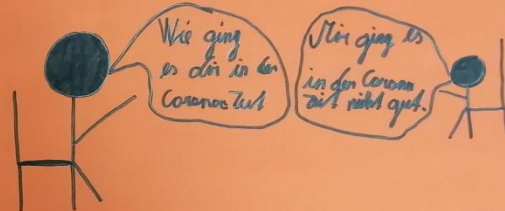 Wie ging
es dir in der
Corona Zeit
Mir ging es
in der Corona
zeit nicht gut.